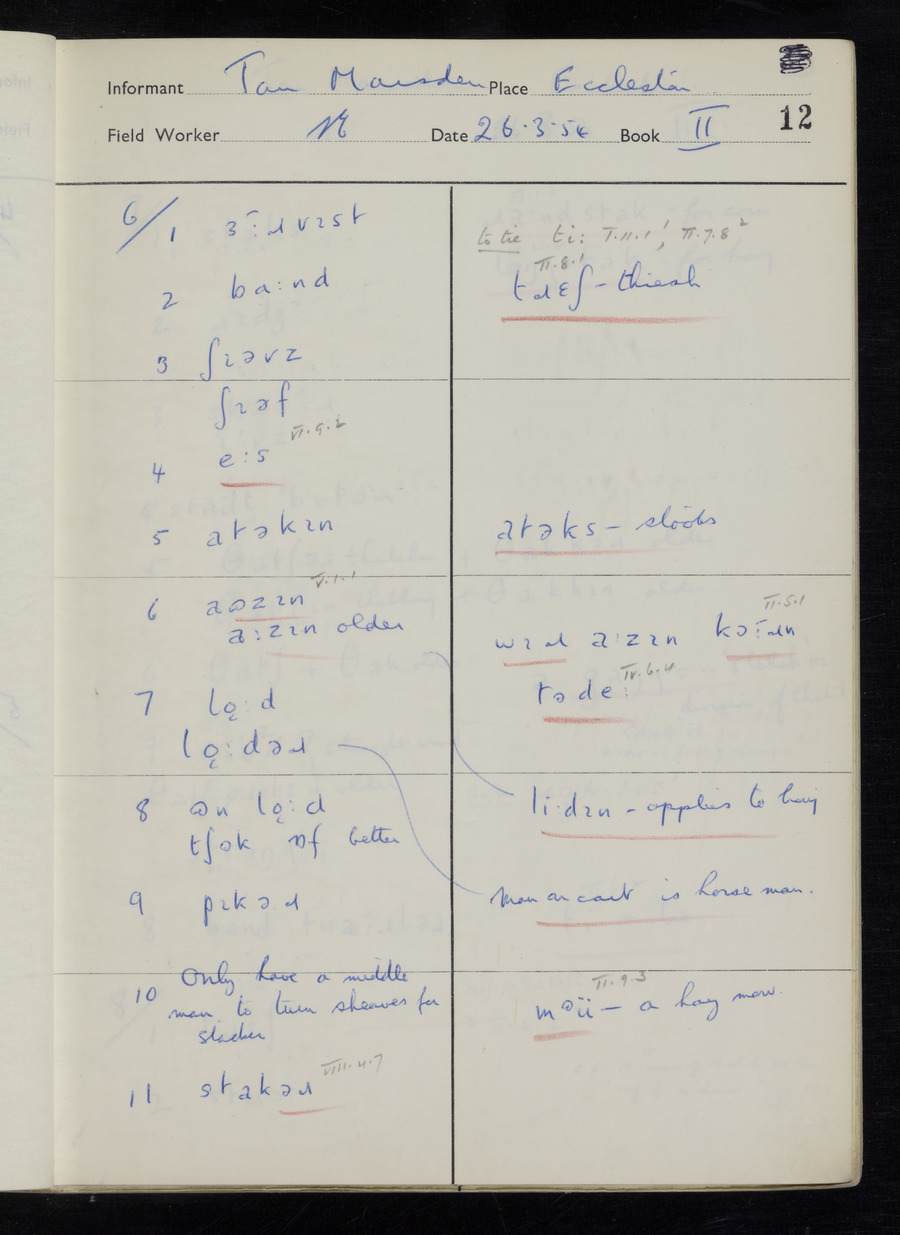 Informant Tom Marsden Place Eccleston
12
Field Worker Date 26.3.54 Book II
6/1 ɜ:ɹvɪst
2 ba:nd
3 ʃɪəvz
ʃɪəf
4 e:s VI.9.2
5 atəkɪn
6 aʊzɪn V.1.1
a:zɪn older
7 lǫ:d
lǫ:dəɹ
8 ɒn lǫ:d
tʃɒk ɒf better
9 pɪkəɹ
10 Only have a middle
man to turn sheaves for
stacker
11 stakəɹ VIII.4.7
to tie ti: I.11.1', II.7.8²
II.8.1
tɹɛʃ - thresh
atəks - stooks
wɪɹ a:zɪn kɔ:ɹn II.5.1
təde: IV.6.4
li:dɪn - applies to hay
man on cart is horse man.
II.9.3
məü - a hay mow.